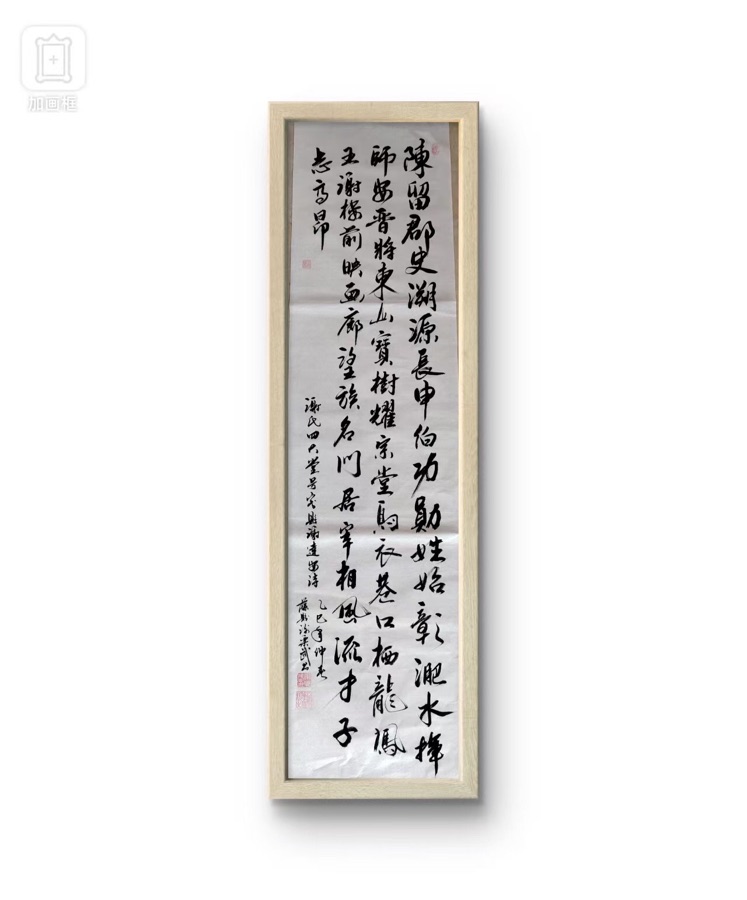 加画框
陳留郡史溯源長申伯功勛姓始彰淝水揮
師安晋將東山寶樹耀宗堂烏衣巷口栖龍鳳
王謝樓前映画廊望族名门居宰相風流才子
志高昂
謝氏四大堂号宗興謝達安詩
乙巳年仲春